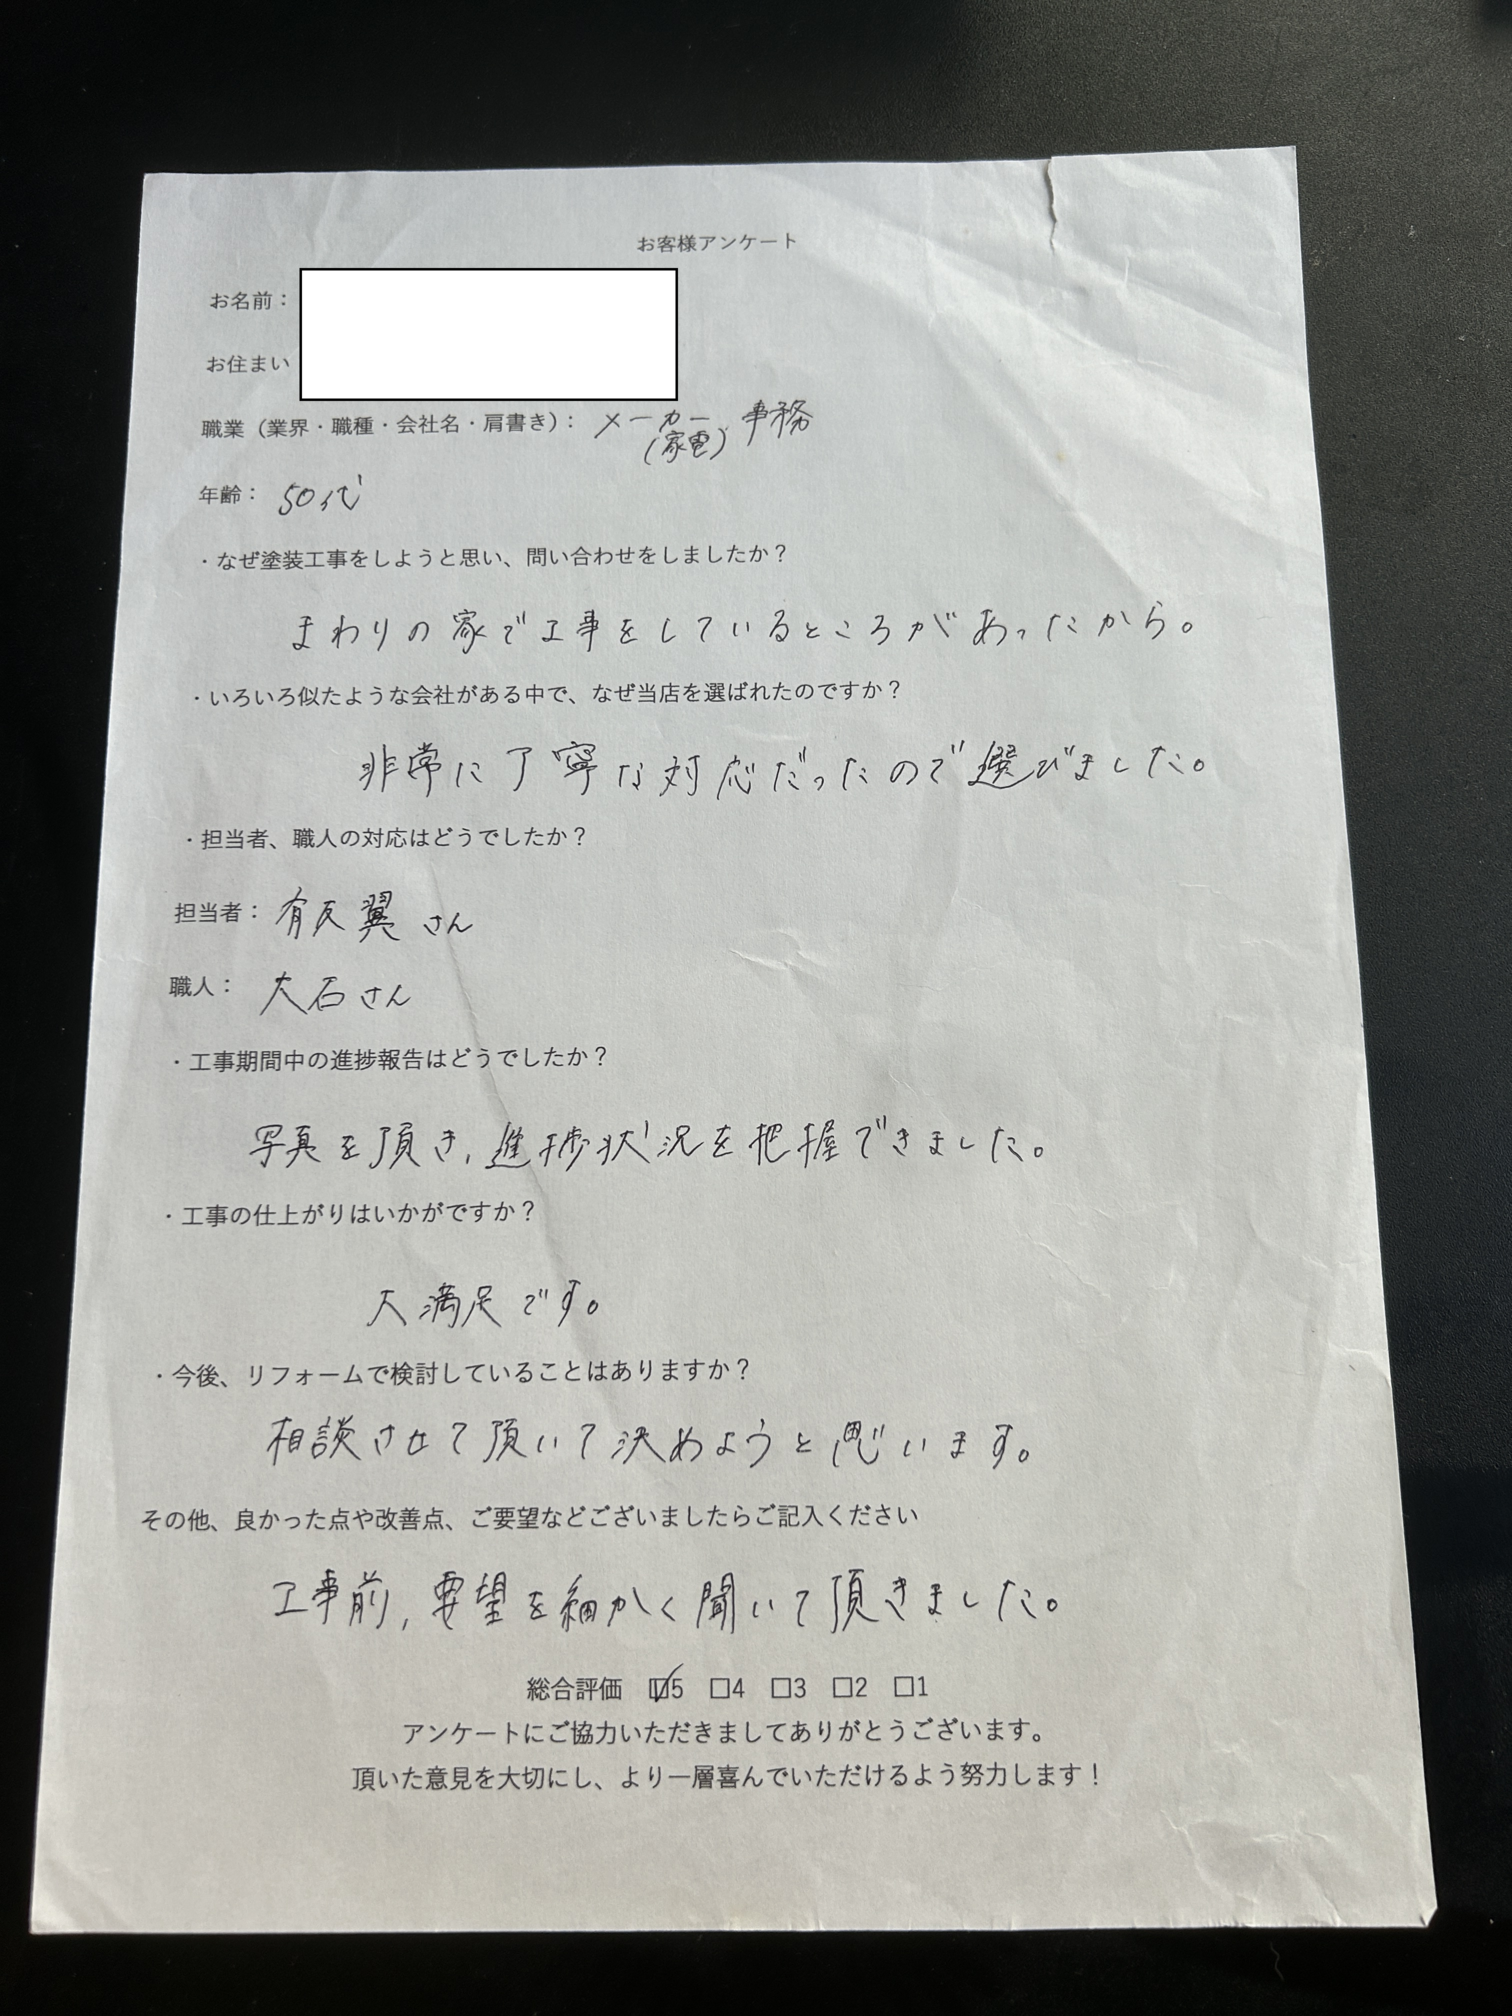 お客様アンケート
お名前：
お住まい
職業（業界・職種・会社名・肩書き）： メーカー、事務
（家電）
年齢： 50代
・なぜ塗装工事をしようと思い、問い合わせをしましたか？
まわりの家で工事をしているところがあったから。
・いろいろ似たような会社がある中で、なぜ当店を選ばれたのですか？
非常に丁寧な対応だったので選びました。
・担当者、職人の対応はどうでしたか？
担当者： 有友翼さん
職人： 大石さん
・工事期間中の進捗報告はどうでしたか？
写真を頂き、進捗状況を把握できました。
・工事の仕上がりはいかがですか？
大満足です。
・今後、リフォームで検討していることはありますか？
相談させて頂いて決めようと思います。
その他、良かった点や改善点、ご要望などございましたらご記入ください
工事前、要望を細かく聞いて頂きました。
総合評価 ☑5 □4 □3 □2 □1
アンケートにご協力いただきましてありがとうございます。
頂いた意見を大切にし、より一層喜んでいただけるよう努力します！